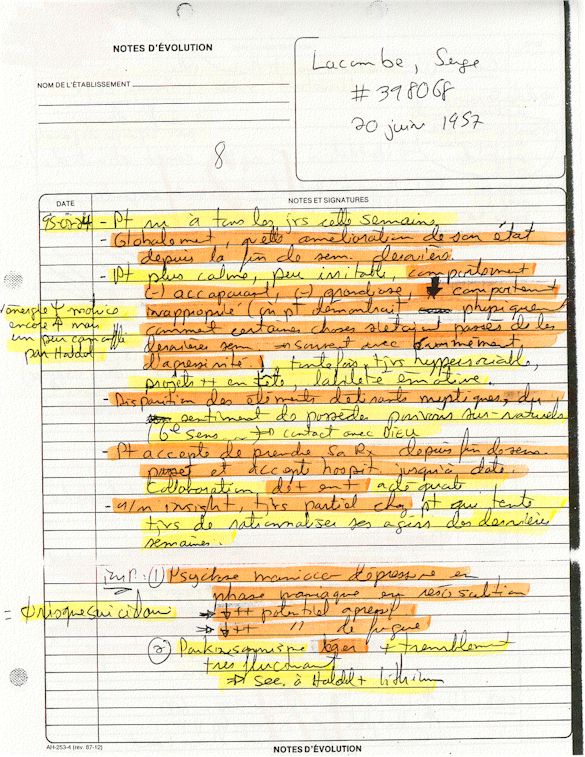 NOTES D'ÉVOLUTION
NOM DE L'ÉTABLISSEMENT
Lacombe, Serge
# 398068
20 juin 1957
8
DATE
NOTES ET SIGNATURES
95-02-24 - Pt vu à tous les jrs cette semaine.
- Globalement, amélioration de son état
depuis la fin de sem. dernière.
- Pt plus calme, peu irritable, comportement
(-) accaparant, (-) grandiose, comportement
inapproprié (un pt démontrait physiquem
comment certaines choses étaient passées de la
dernière sem. souvent avec
d'agressivité.) toutefois, tjrs hypersociable,
projets ++ en tête, labilité émotive.
énergie motrice
encore mais
un peu camouflé
par Haldol
- Disparition des éléments délirants mystiques, du
sentiment de posséder pouvoirs sur-naturels
6e sens → contact avec DIEU
- Pt accepte de prendre sa Rx depuis fin de sem.
et accepte hospit. jusqu'à date.
Collaboration adéquate
- insight, tjrs partiel chez pt qui tente
tjrs de rationnaliser ses agirs des dernières
semaines.
imp: (1) Psychose maniaco dépressive en
phase maniaque en résolution
= risque suicidaire
→ ↓++ potentiel agressif
→ ↓++ " de fugue
(2) Parkinsonnisme léger + tremblement
très fluctuant
→ sec. à Haldol + lithium
AH-253-4 (rev. 87-12)
NOTES D'ÉVOLUTION